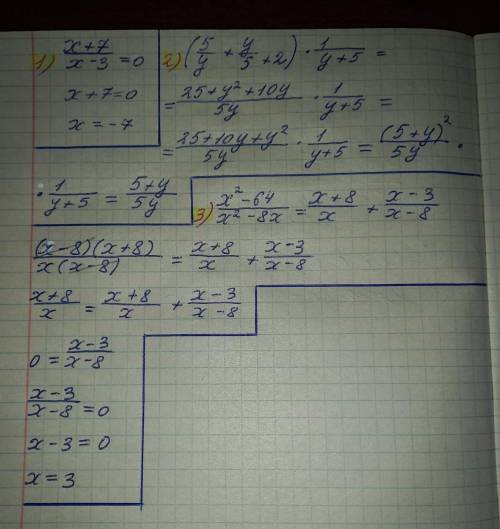 1) (x+7)/(x-3) = 0
x+7=0
x = -7
2) (5/y + y/5 + 2) · 1/(y+5) =
= (25+y²+10y)/(5y) · 1/(y+5) =
= (25+10y+y²)/(5y) · 1/(y+5) = (5+y)²/(5y) ·
· 1/(y+5) = (5+y)/(5y)
3) (x²-64)/(x²-8x) = (x+8)/x + (x-3)/(x-8)
((x-8)(x+8))/(x(x-8)) = (x+8)/x + (x-3)/(x-8)
(x+8)/x = (x+8)/x + (x-3)/(x-8)
0 = (x-3)/(x-8)
(x-3)/(x-8) = 0
x-3 = 0
x = 3